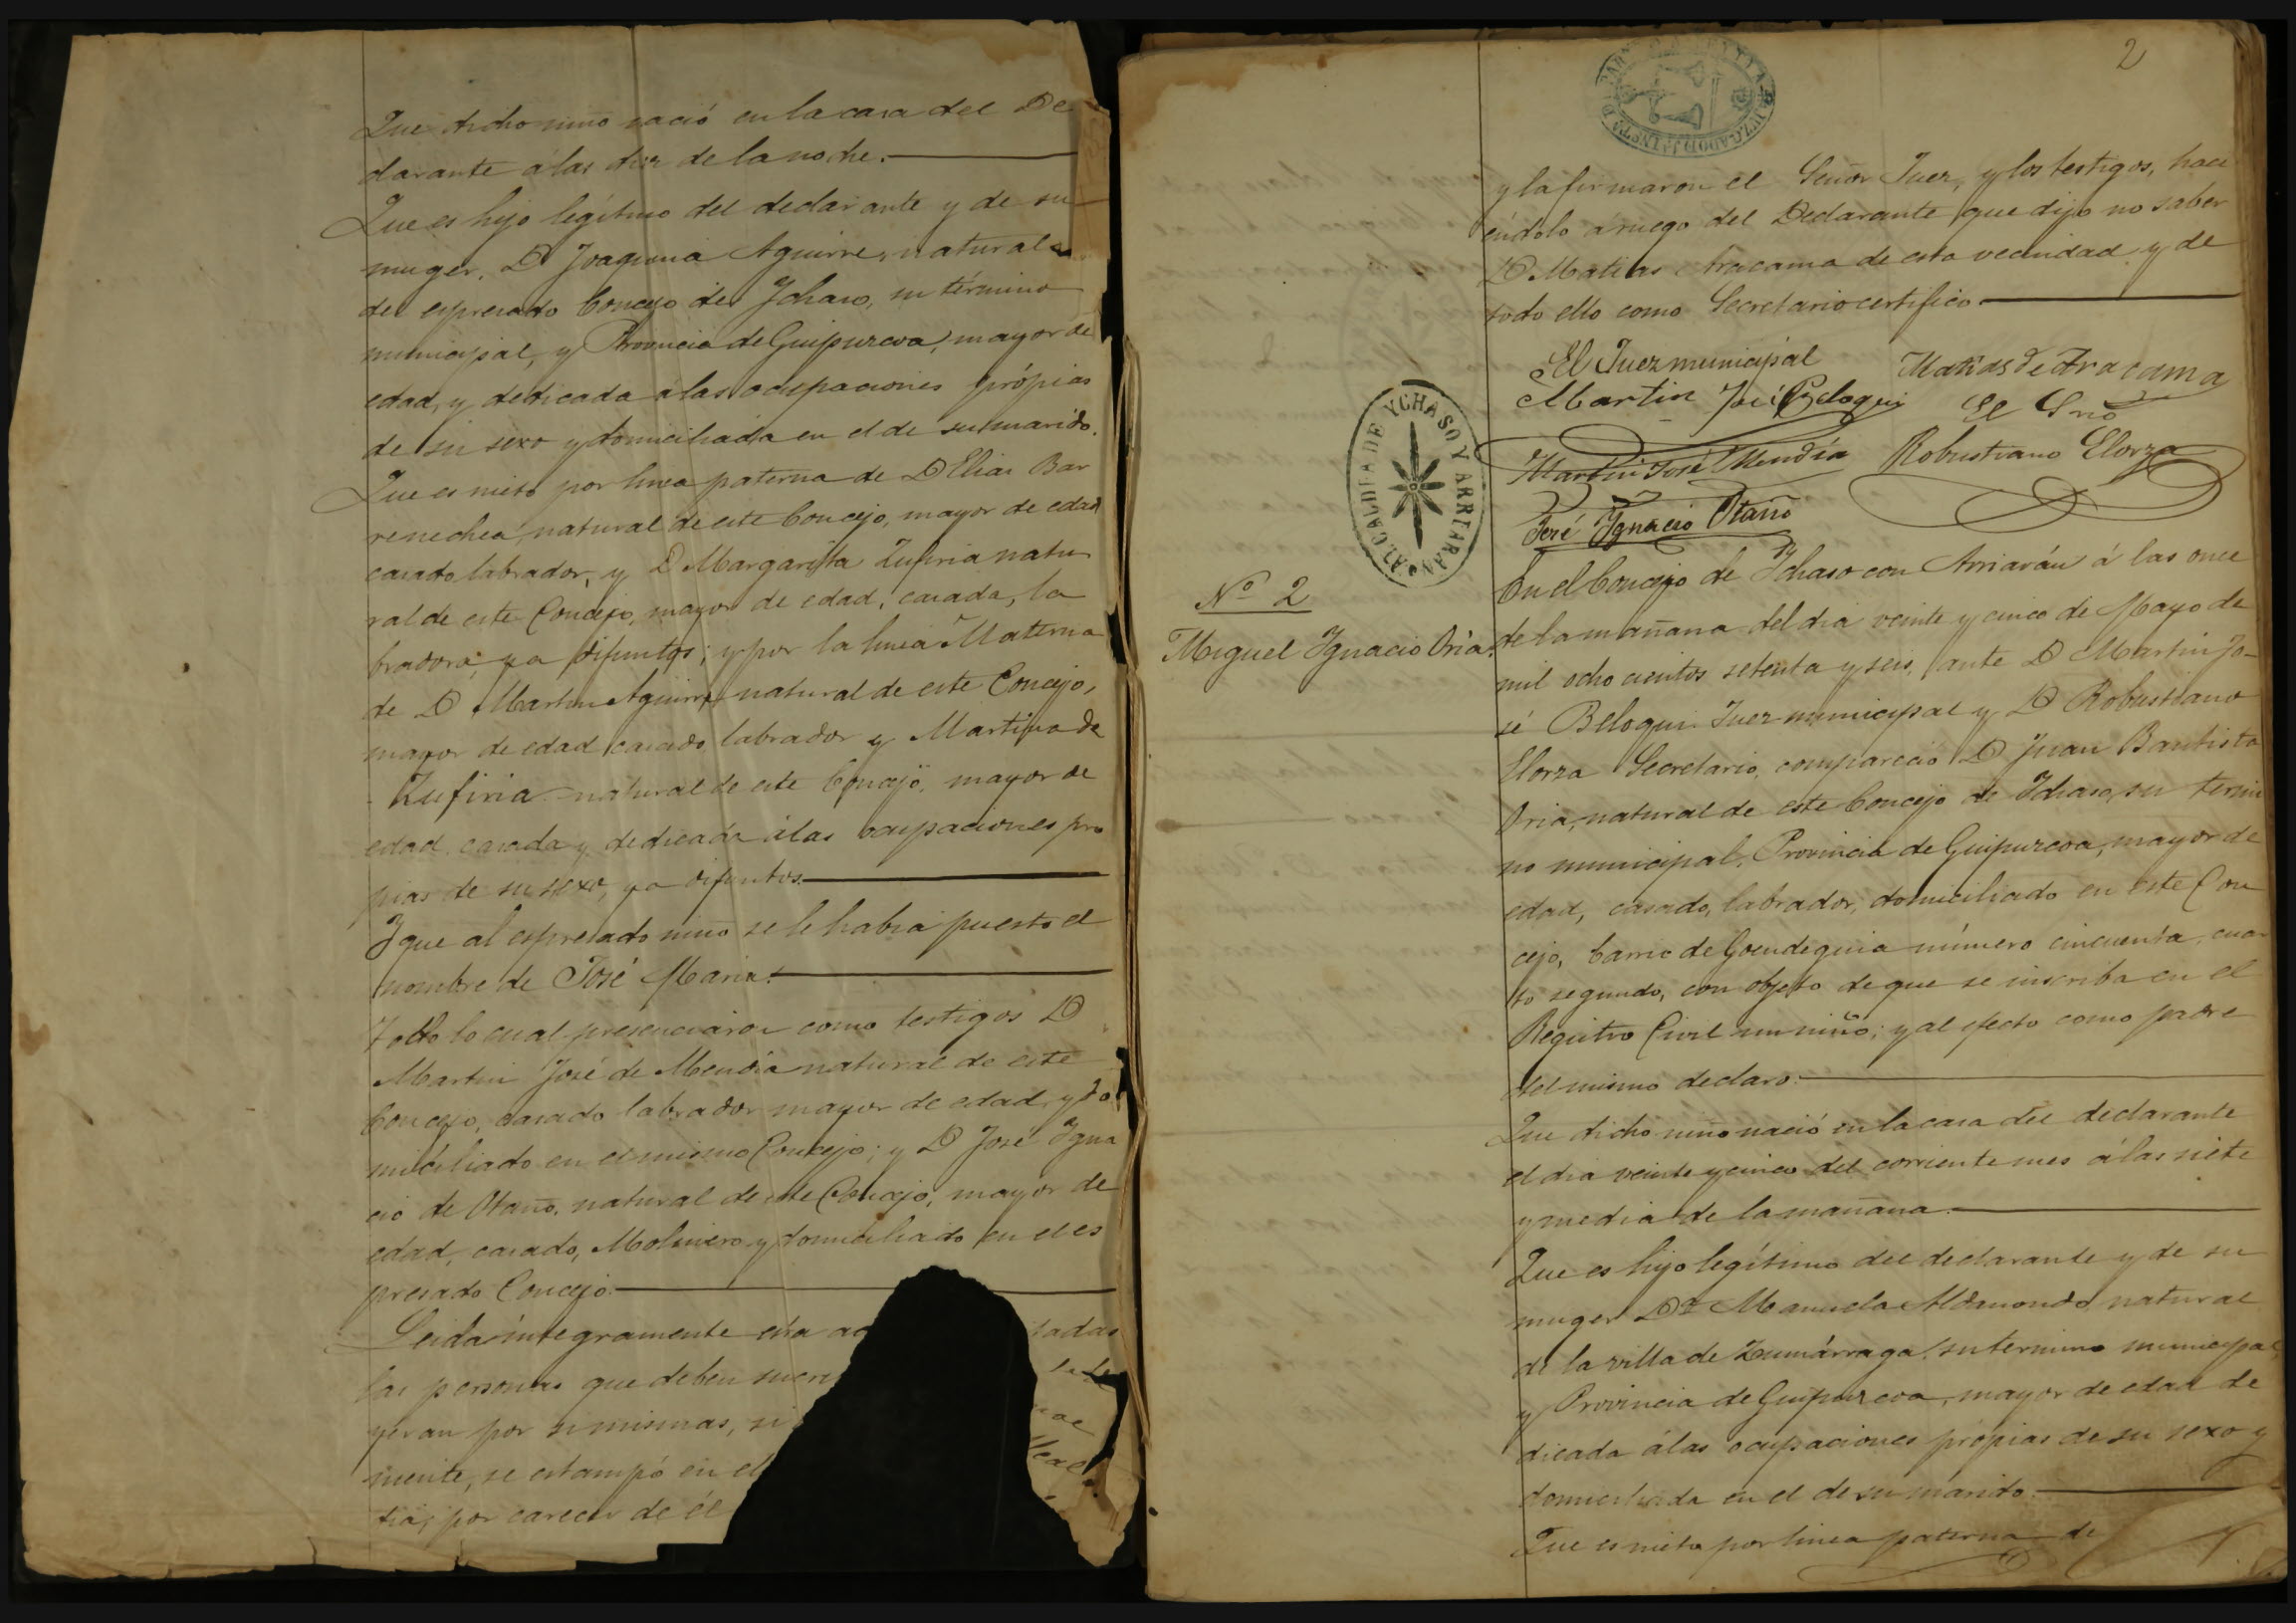 Que dicho niño nació en la casa del De
clarante á las diez de la noche.
Que es hijo legítimo del declarante y de su
muger, D Joaquina Aguirre, natural
del espresado Concejo de Ichaso, su término
municipal, y Provincia de Guipuzcoa, mayor de
edad, y dedicada a las ocupaciones própias
de su sexo y domiciliada en el de su marido.
Que es nieto por linea paterna de D Elias Bar
renechea, natural de este Concejo, mayor de edad
casado labrador, y D Margarita Zufiria natu
ral de este Concejo, mayor de edad, casada, la
bradora, ya difuntos; y por la linea Materna
de D Martin Aguirre natural de este Concejo,
mayor de edad casado, labrador y Martina de
Zufiria natural de este Concejo, mayor de
edad casada y dedicada á las ocupaciones pro
pias de su sexo, ya difuntos.
Y que al espresado niño se le habia puesto el
nombre de José Maria.
Todo lo cual presenciaron como testigos D
Martin José de Mendia natural de este
Concejo, casado labrador mayor de edad, y do
miciliado en el mismo Concejo; y D José Igna
cio de Otaño, natural de este Concejo, mayor de
edad, casado, Molinero y domiciliado en el es
presado Concejo.
Leida integramente esta ac tadas
las personas que deben suscri la le
yeran por si mismas, si
mente, se estampó en el
tia, por carecer de él
2
y la firmaron el Señor Juez, y los testigos, haci
éndolo á ruego del Declarante que dijo no saber
D Matias Aracama de esta vecindad y de
todo ello como Secretario certifico.
El Juez municipal
Martin José Beloqui
Matias de Aracama
El Srio
Martin José Mendia
Robustiano Elorza
José Ygnacio Otaño
ALCALDIA DE YCHASO Y ARRIARAN
Nº 2
Miguel Ignacio Oria.
En el Concejo de Ichaso con Arriarán á las once
de la mañana del dia veinte y cinco de Mayo de
mil ocho cientos setenta y seis, ante D Martin Jo-
sé Beloqui Juez municipal y D Robustiano
Elorza Secretario, compareció D Juan Bautista
Oria, natural de este Concejo de Ichaso, su termi
no municipal, Provincia de Guipuzcoa, mayor de
edad, casado, labrador, domiciliado en este Con
cejo, barrio de Goendeguia número cincuenta, cuar
to segundo, con objeto de que se inscriba en el
Registro Civil un niño; y al efecto como padre
del mismo declaro:
Que dicho niño nació en la casa del declarante
el dia veinte y cinco del corriente mes á las siete
y media de la mañana.
Que es hijo legítimo del declarante y de su
muger Dª Manuela Aldanondo, natural
de la villa de Zumárraga, su termino municipal,
y Provincia de Guipuzcoa, mayor de edad de
dicada á las ocupaciones própias de su sexo y
domiciliada en el de su marido.
Que es nieto por linea paterna de